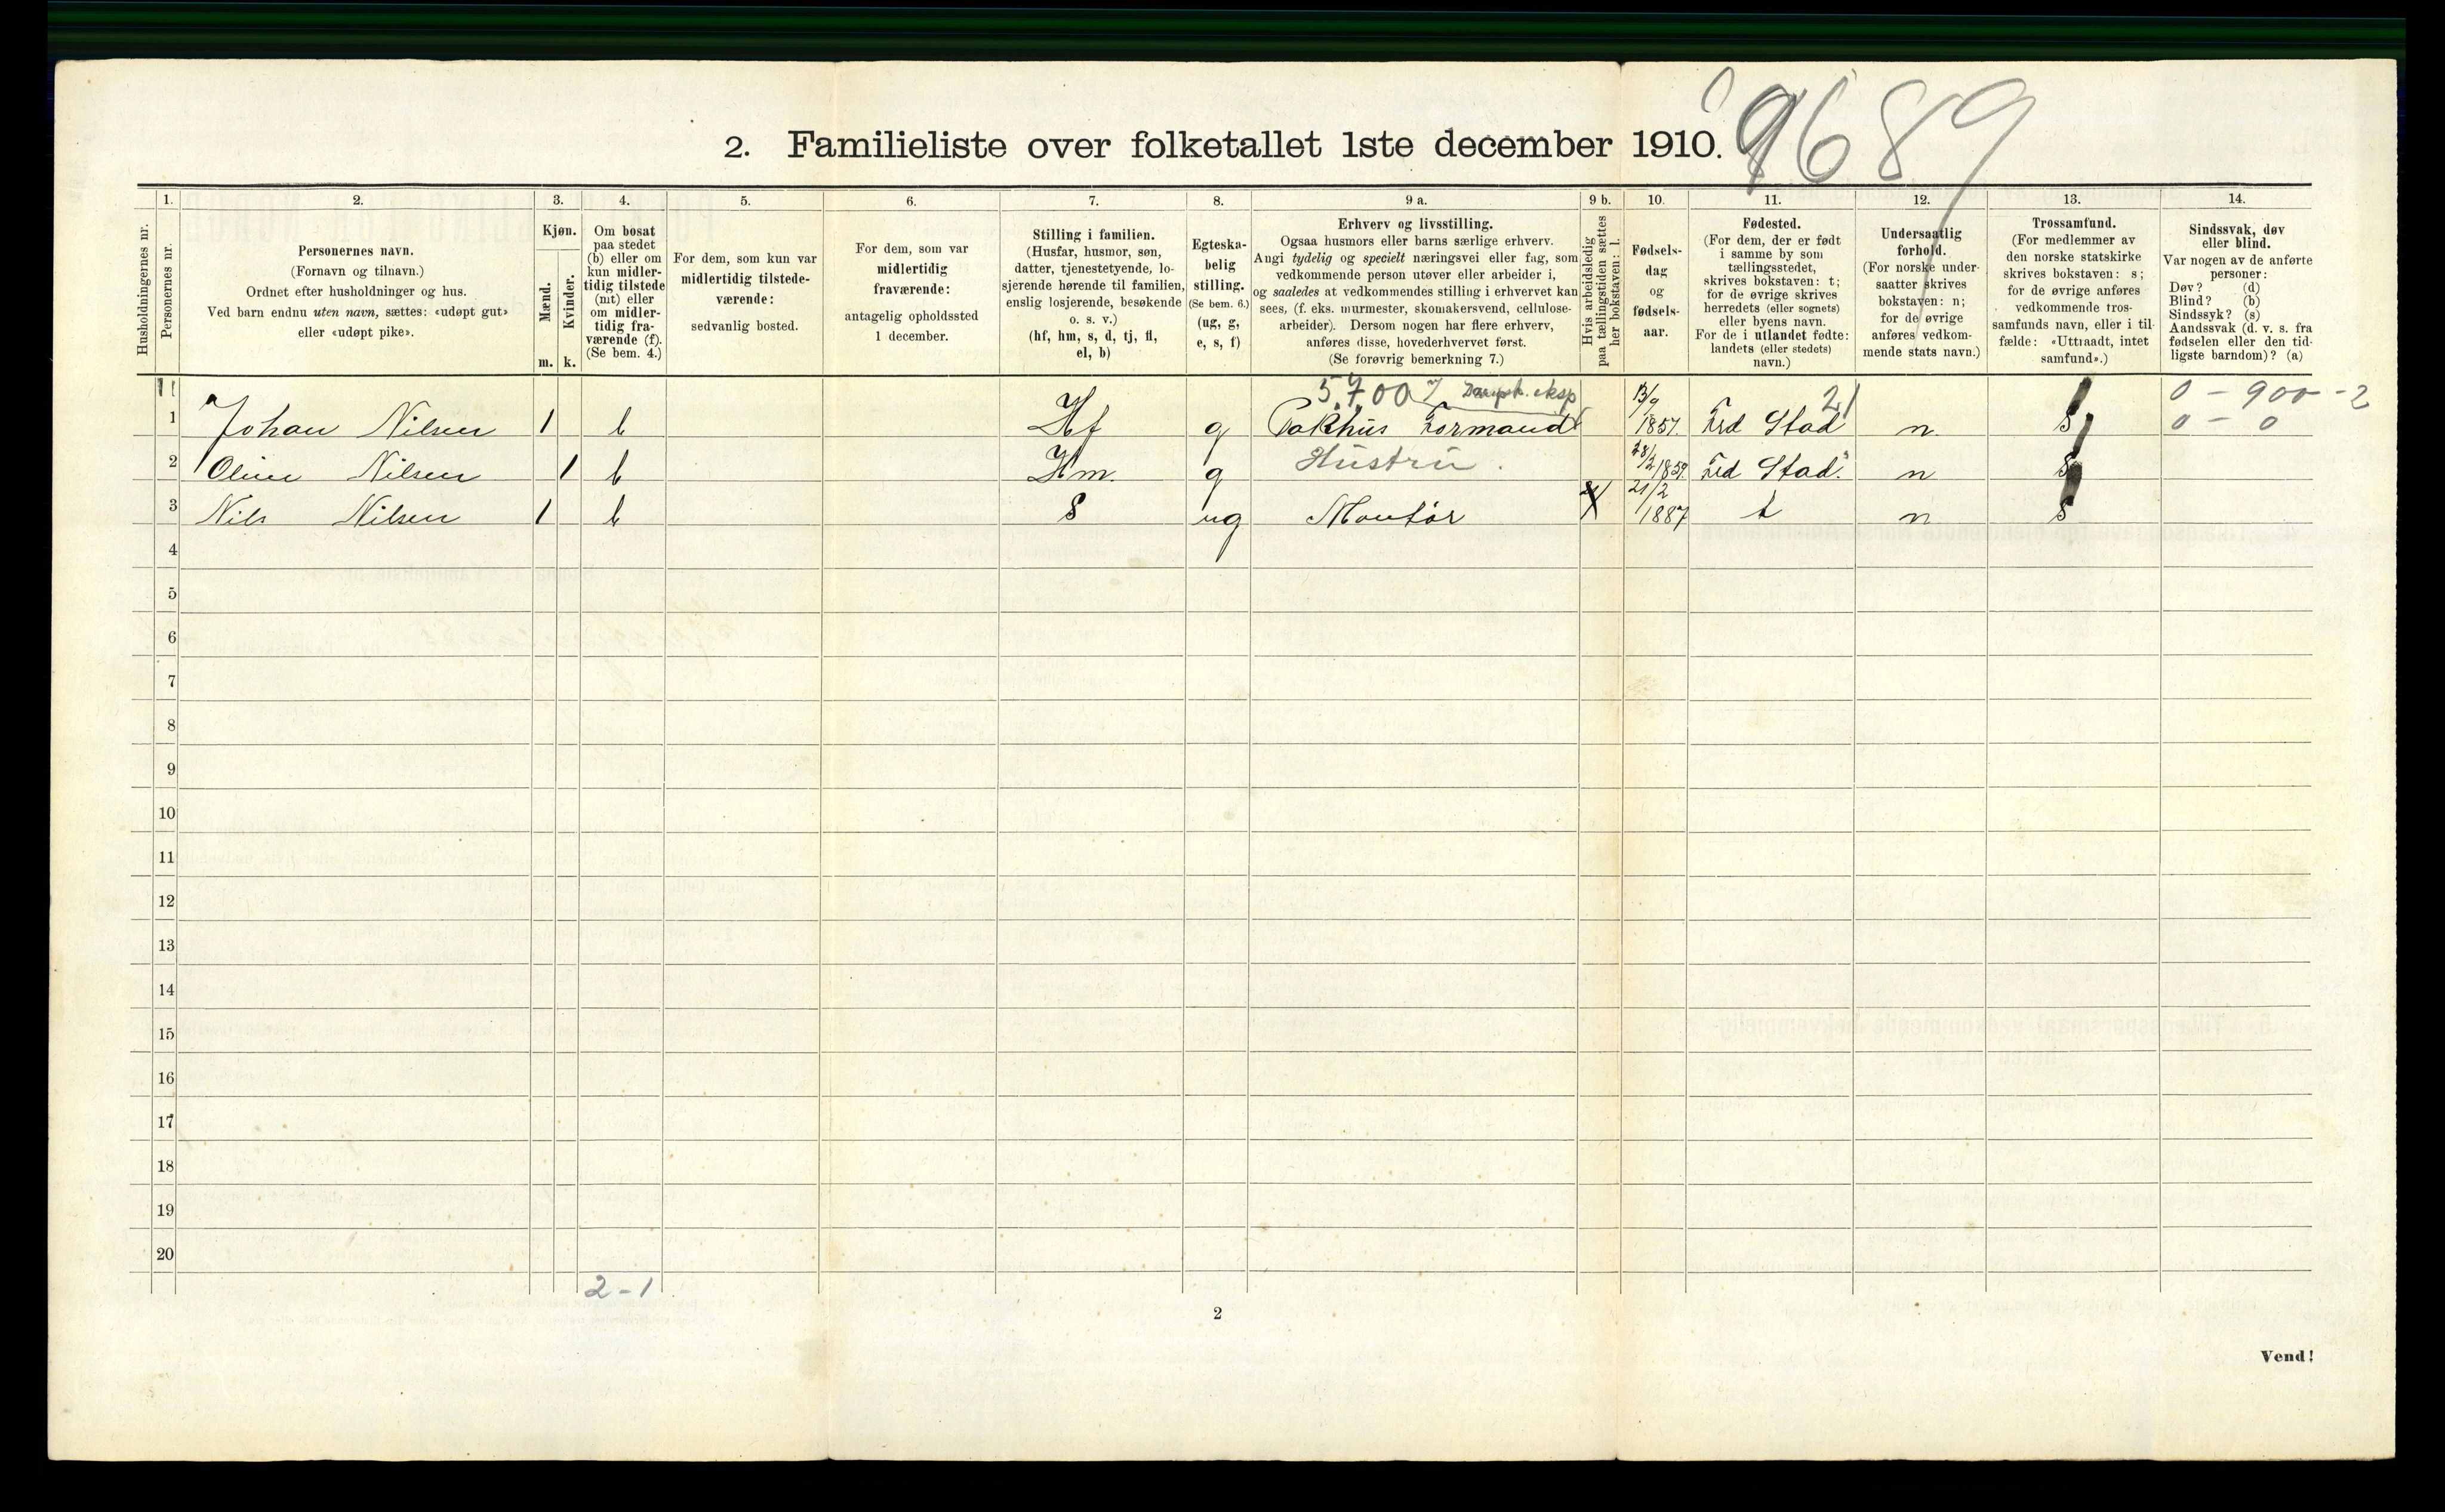 9689
2. Familieliste over folketallet 1ste december 1910.
Husholdningernes nr.
1.
Personernes nr.
2.
Personernes navn.
(Fornavn og tilnavn.)
Ordnet efter husholdninger og hus.
Ved barn endnu uten navn, sættes: «udøpt gut»
eller «udøpt pike».
3.
Kjøn.
Mænd.
Kvinder.
m. k.
4.
Om bosat
paa stedet
(b) eller om
kun midler-
tidig tilstede
(mt) eller
om midler-
tidig fra-
værende (f).
(Se bem. 4.)
5.
For dem, som kun var
midlertidig tilstede-
værende:
sedvanlig bosted.
6.
For dem, som var
midlertidig
fraværende:
antagelig opholdssted
1 december.
7.
Stilling i familien.
(Husfar, husmor, søn,
datter, tjenestetyende, lo-
sjerende hørende til familien,
enslig losjerende, besøkende
o. s. v.)
(hf, hm, s, d, tj, fl,
el, b)
8.
Egteska-
belig
stilling.
(Se bem. 6.)
(ug, g,
e, s, f)
9 a.
Erhverv og livsstilling.
Ogsaa husmors eller barns særlige erhverv.
Angi tydelig og specielt næringsvei eller fag, som
vedkommende person utøver eller arbeider i,
og saaledes at vedkommendes stilling i erhvervet kan
sees, (f. eks. murmester, skomakersvend, cellulose-
arbeider). Dersom nogen har flere erhverv,
anføres disse, hovederhvervet først.
(Se forøvrig bemerkning 7.)
9 b.
Hvis arbeidsledig
paa tællingstiden sættes
her bokstaven: l.
10.
Fødsels-
dag
og
fødsels-
aar.
11.
Fødested.
(For dem, der er født
i samme by som
tællingsstedet,
skrives bokstaven: t;
for de øvrige skrives
herredets (eller sognets)
eller byens navn.
For de i utlandet fødte:
landets (eller stedets)
navn.)
12.
Undersaatlig
forhold.
(For norske under-
saatter skrives
bokstaven: n;
for de øvrige
anføres vedkom-
mende stats navn.)
13.
Trossamfund.
(For medlemmer av
den norske statskirke
skrives bokstaven: s;
for de øvrige anføres
vedkommende tros-
samfunds navn, eller i til-
fælde: «Uttraadt, intet
samfund».)
14.
Sindssvak, døv
eller blind.
Var nogen av de anførte
personer:
Døv? (d)
Blind? (b)
Sindssyk? (s)
Aandssvak (d. v. s. fra
fødselen eller den tid-
ligste barndom)? (a)
5.700 Dampsk. eksp 21 0 - 900 - 2
1 Johan Nilsen 1 b Hf g Pakhus Formand 13/9 1857. Frd Stad n. s 0 - 0
2 Oline Nilsen 1 b Hm. g Hustru. 28/2 1859. Frd Stad. n s
3 Nils Nilsen 1 b s ug Montør 21/2 1887 t n s
4
5
6
7
8
9
10
11
12
13
14
15
16
17
18
19
20
2-1
2
Vend!